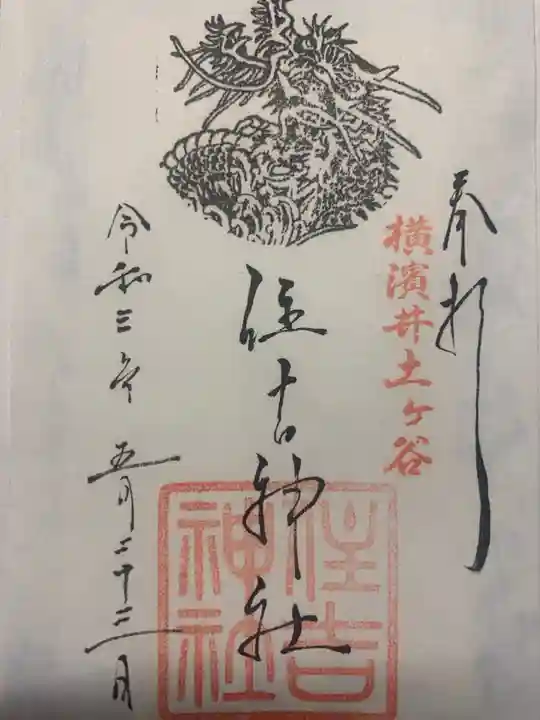 奉拝
横濱井土ヶ谷
住吉神社
住吉神社
令和三年 五月二十二日